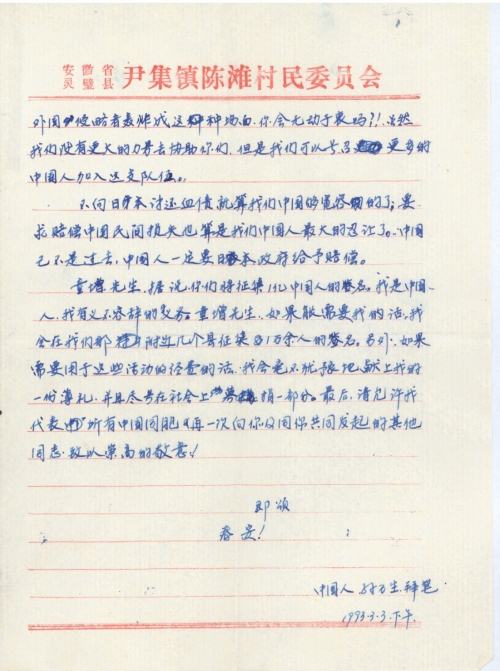 安徽省
灵璧县 尹集镇陈滩村民委员会
外国侵略者轰炸成这种场面,你会无动于衷吗?!当然
我们没有更大的力量去协助你们,但是我们可以号召更多的
中国人加入这支队伍。
不向日本讨还血债就算我们中国够宽容的了,要
求赔偿中国民间损失也算是我们中国人最大的忍让了。中国
已不是过去,中国人一定要日本政府给予赔偿。
童增先生,据说你们将征集1亿中国人的签名。我是中国
人,我有义不容辞的义务。童增先生,如果能需要我的话,我
会在我们附近几个县征集万余人的签名。另外,如果
需要用于这些活动的经费的话,我会毫不犹豫地献上我的
一份薄礼,并且尽量在社会上募捐一部分。最后,请允许我
代表所有中国同胞再一次向你及同你共同发起的其他
同志,致以崇高的敬意!
即颂
春安!
中国人 万生 拜笔
1993.3.3.下午